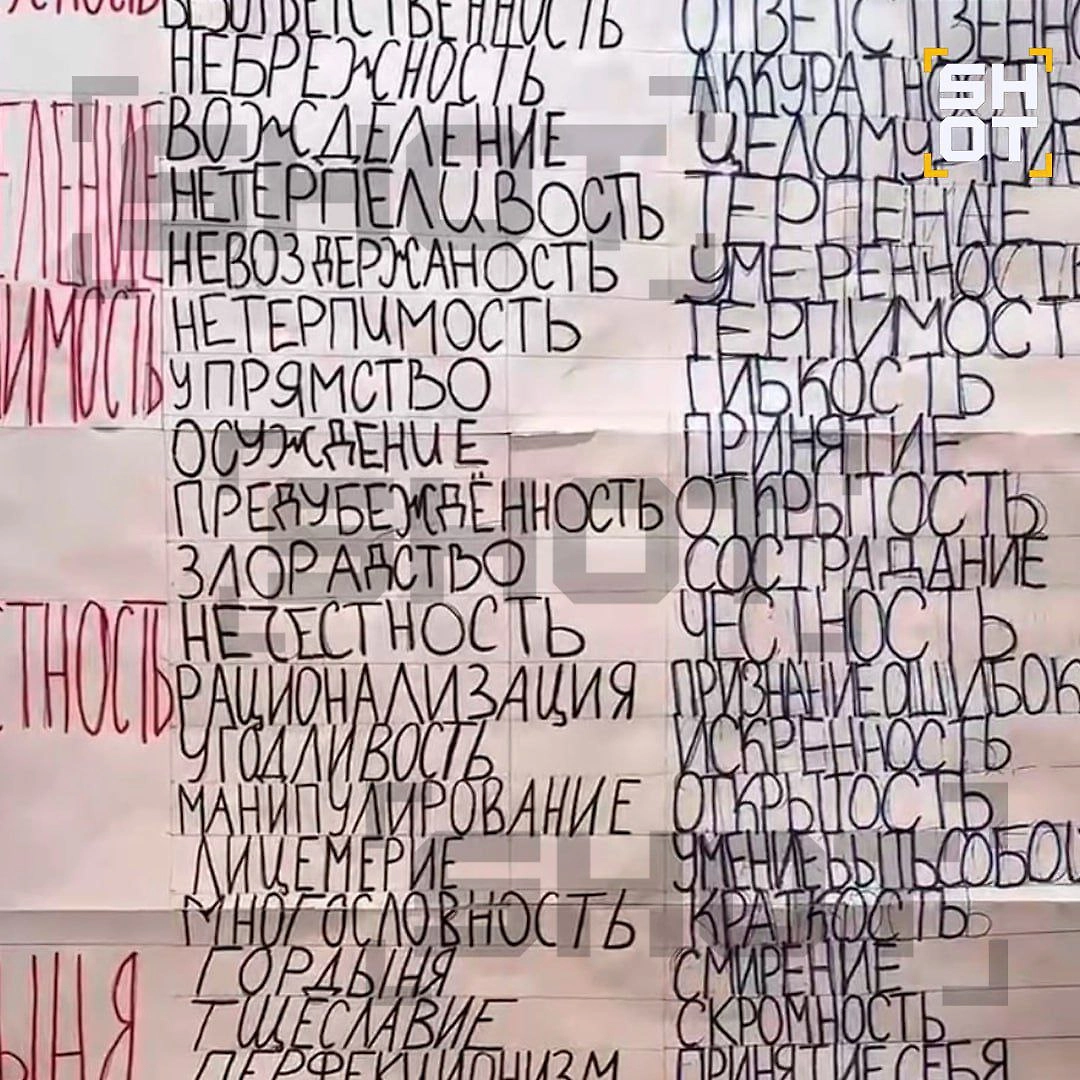 БЕЗОТВЕТСТВЕННОСТЬ ОТВЕТСТВЕННО
НЕБРЕЖНОСТЬ АККУРАТНОСТЬ
SHOT
ВОЖДЕЛЕНИЕ ЦЕЛОМУДРИЕ
НЕТЕРПЕЛИВОСТЬ ТЕРПЕНИЕ
НЕВОЗДЕРЖАНОСТЬ УМЕРЕННОСТЬ
ИМОСТЬ НЕТЕРПИМОСТЬ ТЕРПИМОСТ
УПРЯМСТВО ГИБКОСТЬ
ОСУЖДЕНИЕ ПРИНЯТИЕ
ПРЕДУБЕЖДЁННОСТЬ ОТКРЫТОСТЬ
ЗЛОРАДСТВО СОСТРАДАНИЕ
ТНОСТЬ НЕЧЕСТНОСТЬ ЧЕСТНОСТЬ
РАЦИОНАЛИЗАЦИЯ ПРИЗНАНИЕ ОШИБОК
УГОДЛИВОСТЬ ИСКРЕННОСТЬ
МАНИПУЛИРОВАНИЕ ОТКРЫТОСТЬ
ЛИЦЕМЕРИЕ УМЕНИЕ БЫТЬ СОБОЙ
МНОГОСЛОВНОСТЬ КРАТКОСТЬ
ЫНЯ ГОРДЫНЯ СМИРЕНИЕ
ТЩЕСЛАВИЕ СКРОМНОСТЬ
ПЕРФЕКЦИОНИЗМ ПРИНЯТИЕ СЕБЯ